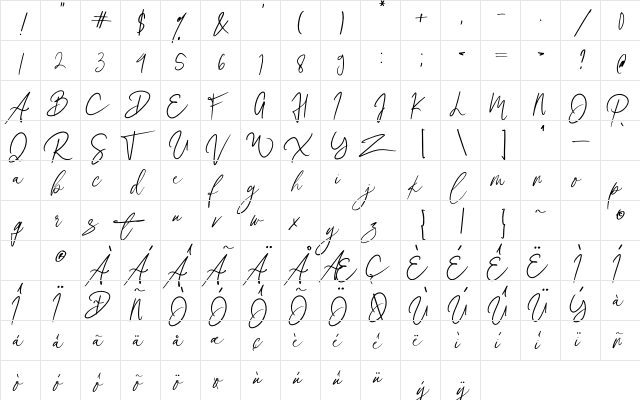 ! " # $ % & ' ( ) * + , - . / 0
1 2 3 4 5 6 7 8 9 : ; < = > ? @
A B C D E F G H I J K L M N O P
Q R S T U V W X Y Z [ \ ] ^ _
a b c d e f g h i j k l m n o p
q r s t u v w x y z { | } ~ ©
® À Á Â Ã Ä Å Æ Ç È É Ê Ë Ì Í
Î Ï Ð Ñ Ò Ó Ô Õ Ö Ø Ù Ú Û Ü Ý à
á â ã ä å æ ç è é ê ë ì í î ï ñ
ò ó ô õ ö ø ù ú û ü ý ÿ